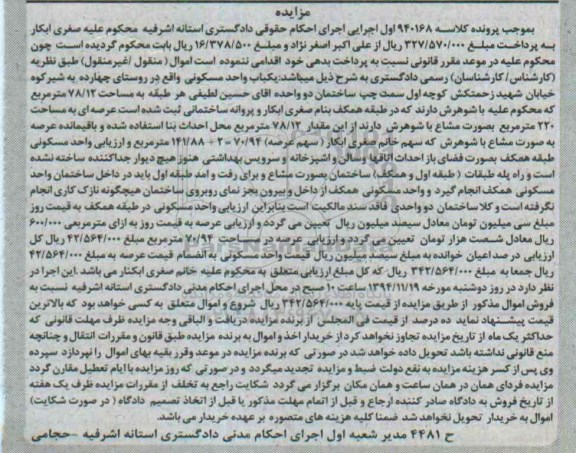 مزایده
بموجب پرونده کلاسه ۹۴۰۱۶۸ اول اجرایی اجرای احکام حقوقی دادگستری استانه اشرفیه محکوم علیه صغری ابکار
به پرداخت مبلغ ۳۲۷/۵۷۰/۰۰۰ ریال از علی اکبر اصغر نژاد و مبلغ ۱۶/۳۷۸/۵۰۰ ریال بابت محکوم گردیده است چون
محکوم علیه در موعد مقرر قانونی نسبت به پرداخت بدهی خود اقدامی ننموده است اموال ( منقول /غیرمنقول) طبق نظریه
(کارشناس/ کارشناسان) رسمی دادگستری به شرح ذیل میباشد:یکباب واحد مسکونی واقع در روستای چهارده به شیرکوه
خیابان شهید زحمتکش کوچه اول سمت چپ ساختمان دو واحده اقای حسین لطیفی هر طبقه به مساحت ۷۸/۱۲ مترمربع
که محکوم علیه با شوهرش دارند که در طبقه همکف بنام صغری ابکار و پروانه ساختمانی ثبت شده است عرصه ای به مساحت
۲۲۰ مترمربع بصورت مشاع با شوهرش دارند از این مقدار ۷۸/۱۲ مترمربع محل احداث بنا استفاده شده و باقیمانده عرصه
به صورت مشاع با شوهرش که سهم خانم صغری ابکار ( سهم عرصه) ۷۰/۹۴ = ۲ ÷ ۱۴۱/۸۸ مترمربع و ارزیابی واحد مسکونی
طبقه همکف بصورت فضای باز احداث اتاقها و هال و اشپزخانه و سرویس بهداشتی هنوز هیچ دیوار جداکننده ساخته نشده
است و راه پله طبقات ( طبقه اول و همکف) ساختمان بصورت مشاع و برای رفت و امد طبقه اول باید در داخل ساختمان واحد
مسکونی همکف انجام گیرد و واحد مسکونی همکف از داخل و بیرون بجز نمای روبروی ساختمان هیچگونه نازک کاری انجام
نگرفته است و کلا ساختمان دو واحدی فاقد سند مالکیت است بنابراین ارزیابی واحد مسکونی در طبقه همکف به قیمت روز
مبلغ سی میلیون تومان معادل سیصد میلیون ریال تعیین می گردد و ارزیابی عرصه به قیمت روز به ازای مترمربعی ۶۰۰/۰۰۰
ریال معادل شصت هزار تومان تعیین می گردد و ارزیابی عرصه در مساحت ۷۰/۹۴ مترمربع مبلغ ۴۲/۵۶۴/۰۰۰ ریال کل
ارزیابی در صد اعیان خوانده به مبلغ سیصد میلیون ریال قیمت واحد مسکونی به انضمام قیمت عرصه به مبلغ ۴۲/۵۶۴/۰۰۰
ریال جمعا به مبلغ ۳۴۲/۵۶۴/۰۰۰ ریال که کل مبلغ ارزیابی متعلق به محکوم علیه خانم صغری ابکنار می باشد .این اجرا در
نظر دارد در روز دوشنبه مورخه ۱۳۹۴/۱۱/۱۹ ساعت ۱۰ صبح در محل اجرای احکام مدنی دادگستری استانه اشرفیه نسبت به
فروش اموال مذکور از طریق مزایده از قیمت پایه ۳۴۲/۵۶۴/۰۰۰ ریال شروع و اموال متعلق به کسی خواهد بود که بالاترین
قیمت پیشنهاد نماید ده درصد از قیمت فی المجلس از برنده مزایده دریافت و الباقی وجه مزایده ظرف مهلت قانونی که
حداکثر یک ماه از تاریخ مزایده تجاوز نخواهد کرد از خریدار اخذ و اموال به برنده مزایده طبق قانون و مقررات انتقال و چنانچه
منع قانونی نداشته باشد تحویل داده خواهد شد در صورتی که برنده مزایده در موعد وقرر بقیه بهای اموال را نپردازد سپرده
وی پس از کسر هزینه مزایده به نفع دولت ضبط و مزایده تجدید میگردد و در صورتی که روز مزایده با ایام تعطیل مقارن گردد
مزایده فردای همان در همان ساعت و همان مکان برگزار می گردد شکایت راجع به تخلف از مقررات مزایده ظرف یک هفته
از تاریخ فروش به دادگاه صادر کننده ارجاع و قبل از اتمام مهلت مذکور یا قبل از اتخاذ تصمیم دادگاه ( در صورت شکایت)
اموال به خریدار تحویل نخواهد شد ضمنا کلیه هزینه های متصوره بر عهده خریدار می باشد.
ح ۴۴۸۱ مدیر شعبه اول اجرای احکام مدنی دادگستری استانه اشرفیه -حجامی